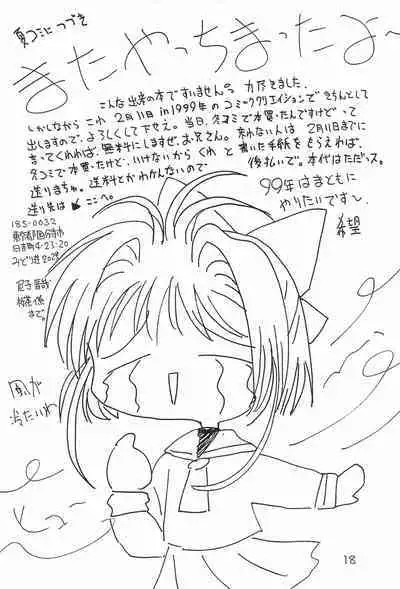 夏コミにつづき
またやっちまったよ〜
こんな出来の本ですいません。力尽きました。
しかしながら これ 2月11日 in 1999年の コミッククリエイションで きちんとして
出しますので、よろしくして下せえ。当日、冬コミで本買ったんですけどって
言ってくれれば、無料にしますぜ、お兄さん。来れない人は 2月11日までに
冬コミで本買ったけど、いけないから くれ と 書いた手紙をもらえれば、
送りまさあ。送料とかわかんないので 後払いで。本代はただっス。
送り先は ここへ。
99年はまともに
やりたいですし
希望
185-0032
東京都国分寺市
日吉町4-23-20
みどり荘202
まで。
風が
冷たいわ
ヒュー
18